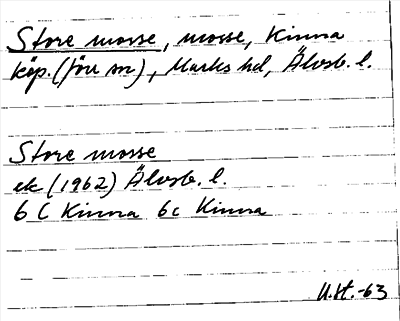 Store mosse, mosse, Kinna
köp. (förr sn), Marks hd, Älvsb. l.
Store mosse
ek (1962) Älvsb. l.
6 C Kinna 6c Kinna
U.St. -63